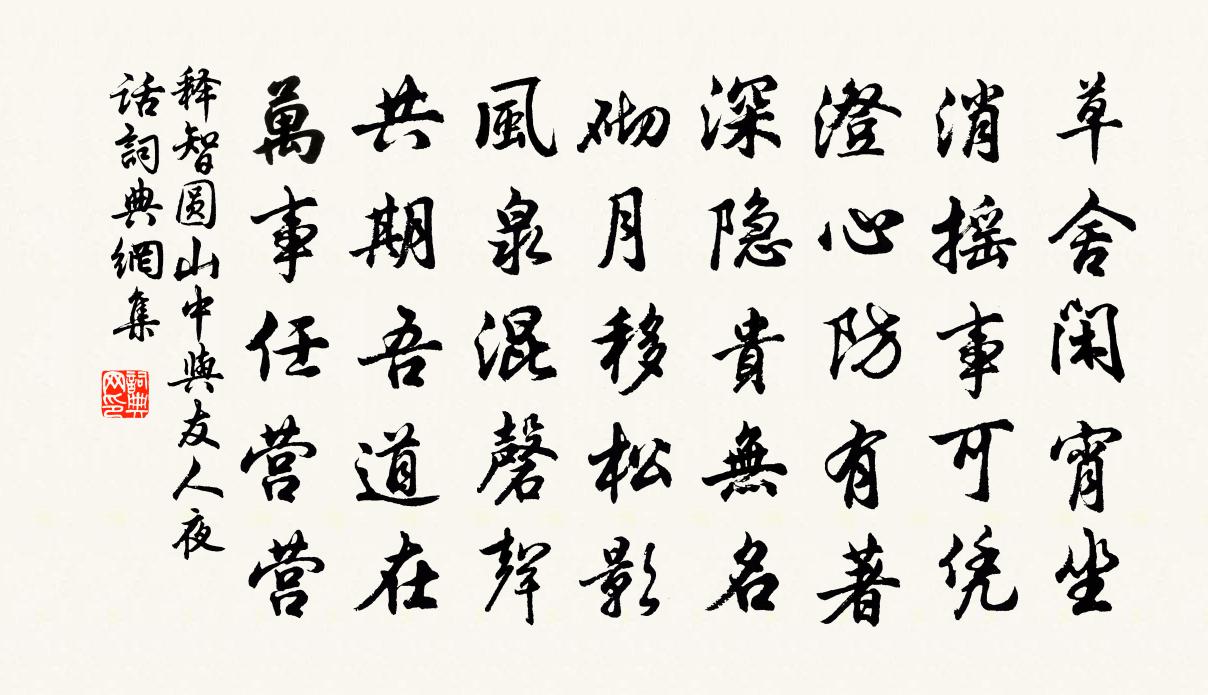 草舍闲宵坐
消摇事可凭
澄心防有著
深隐貴無名
砌月移松影
風泉混磬聲
共期吾道在
萬事任营营
释智圆山中與友人夜
话詞典網集
詞典
网印